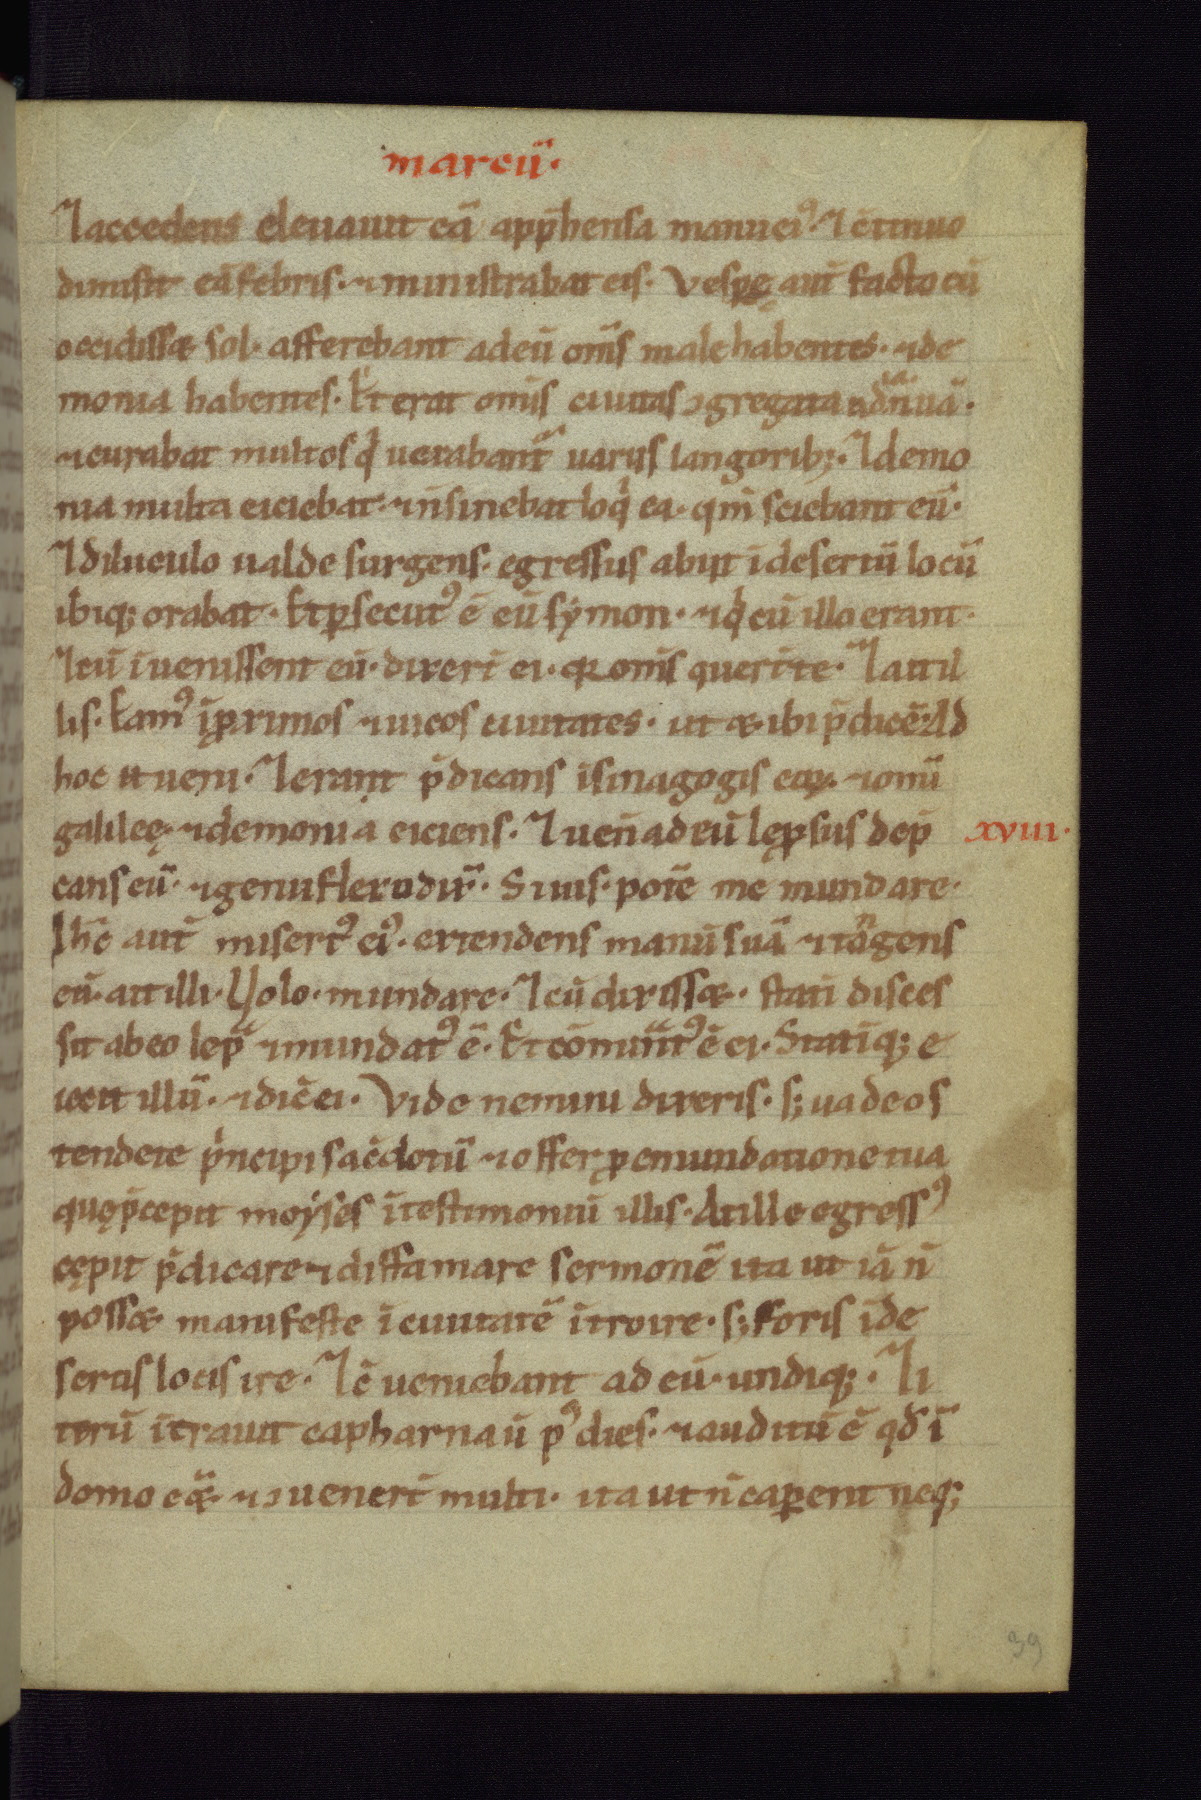 marcū·
⁊ accedens eleuauit eā app̄hensa manu ei᷒· ⁊ ↄ̄tinuo
dimisit eā febris· ⁊ ministrabat eis· Vespę aut̄ facto cū
occidisset sol· afferebant ad eū om̄s male habentes· ⁊ de
monia habentes· Et erat om̄is ciuitas ↄgregata ad ianuā·
⁊ curabat multos q̇ uexabant᷑ uariis langorib;· ⁊ demo
nia multa eiciebat· ⁊ n̄ sinebat loq̇ ea· qm̄ sciebant eū·
⁊ diluculo ualde surgens· egressus abiit ī desertū locū
ibiq; orabat· Et ꝑsecut᷒ ē eū sẏmon· ⁊ q̇ cū illo erant·
⁊ cū īuenissent eū· dixer̄t ei· q̄ om̄s quer̄t te· ⁊ ait il
lis· Eam᷒ ī ꝓximos ⁊ uicos ciuitates· ut & ibi p̄dicē· Ad
hoc ueni· ⁊ erant p̄dicans ī sinagogis eoꝝ· ⁊ omi
galileę· ⁊ demonia eiciens· ⁊ uen̄ ad eū lęꝓsus dep̄
xviii·
cans eū· ⁊ genu flexo dix̄· Si uis· potē me mundare·
Ihc̄ aut̄ misert᷒ ei᷒· extendens manū suā ⁊ tāgens
eū· ait illi· Uolo· mundare· ⁊ cū dixisset· statī disces
sit ab eo lep̄ ⁊ mundat᷒ ē· Et cōminat᷒ ē ei· Statīq; e
iecit illū· ⁊ dic̄ ei· Vide nemini dixeris· s; uade os
tende te p̄ncipi sac̄dotū ⁊ offer ꝓ emundatione tua
quę p̄cepit moẏses ī testimoniū illis· At ille egress᷒
cępit p̄dicare ⁊ diffamare sermonē ita ut iā n̄
posset manifeste ī ciuitatē ītroire· s; foris ī de
sertis locis ire· ⁊ ↄ̄ueniebant ad eū undiq;· ⁊ i
terū ītrauit capharnaū p᷒ dies· ⁊ auditū ē qd̄ ī
domo ēet· ⁊ ↄuener̄t multi· ita ut n̄ caꝑent neq;
39